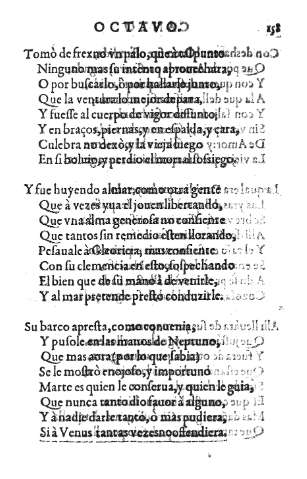 OCTAVO. 158
Tomò de frexno vn palo, que a tal punto
Ninguno mas su intẽto aprouechara,
O por buscarlo, ò por hallarle junto,
Que la ventura lo mejor depara,
Y fuesse al cuerpo de vigor defunto,
Y en braços, piernas, y en espalda, y cara,
Culebra no dexò, y la vieja luego
En si boluio, y perdio el mortal sossiego.
Y fue huyendo al mar, como otra gente
Que à vezes yua el jouen libertando,
Que vna alma generosa no consiente
Que tantos sin remedio estẽ llorando,
Pesauale à mas consiente
Con su clemencia en esto, sospechando
El bien que de su mano à de venirle,
Y al mar pretende presto conduzirle.
Su barco apresta, como conuenia,
Y pusole en las manos de Neptuno,
Que mas aora (por lo que sabia)
Se le mostrò enojoso, y importuno
Marte es quien le conserua, y quien le guia,
Que nunca tanto dio fauor à alguno,
Y à nadie darle tanto, ò mas pudiera,
Si à Venus tantas vezes no offendiera,